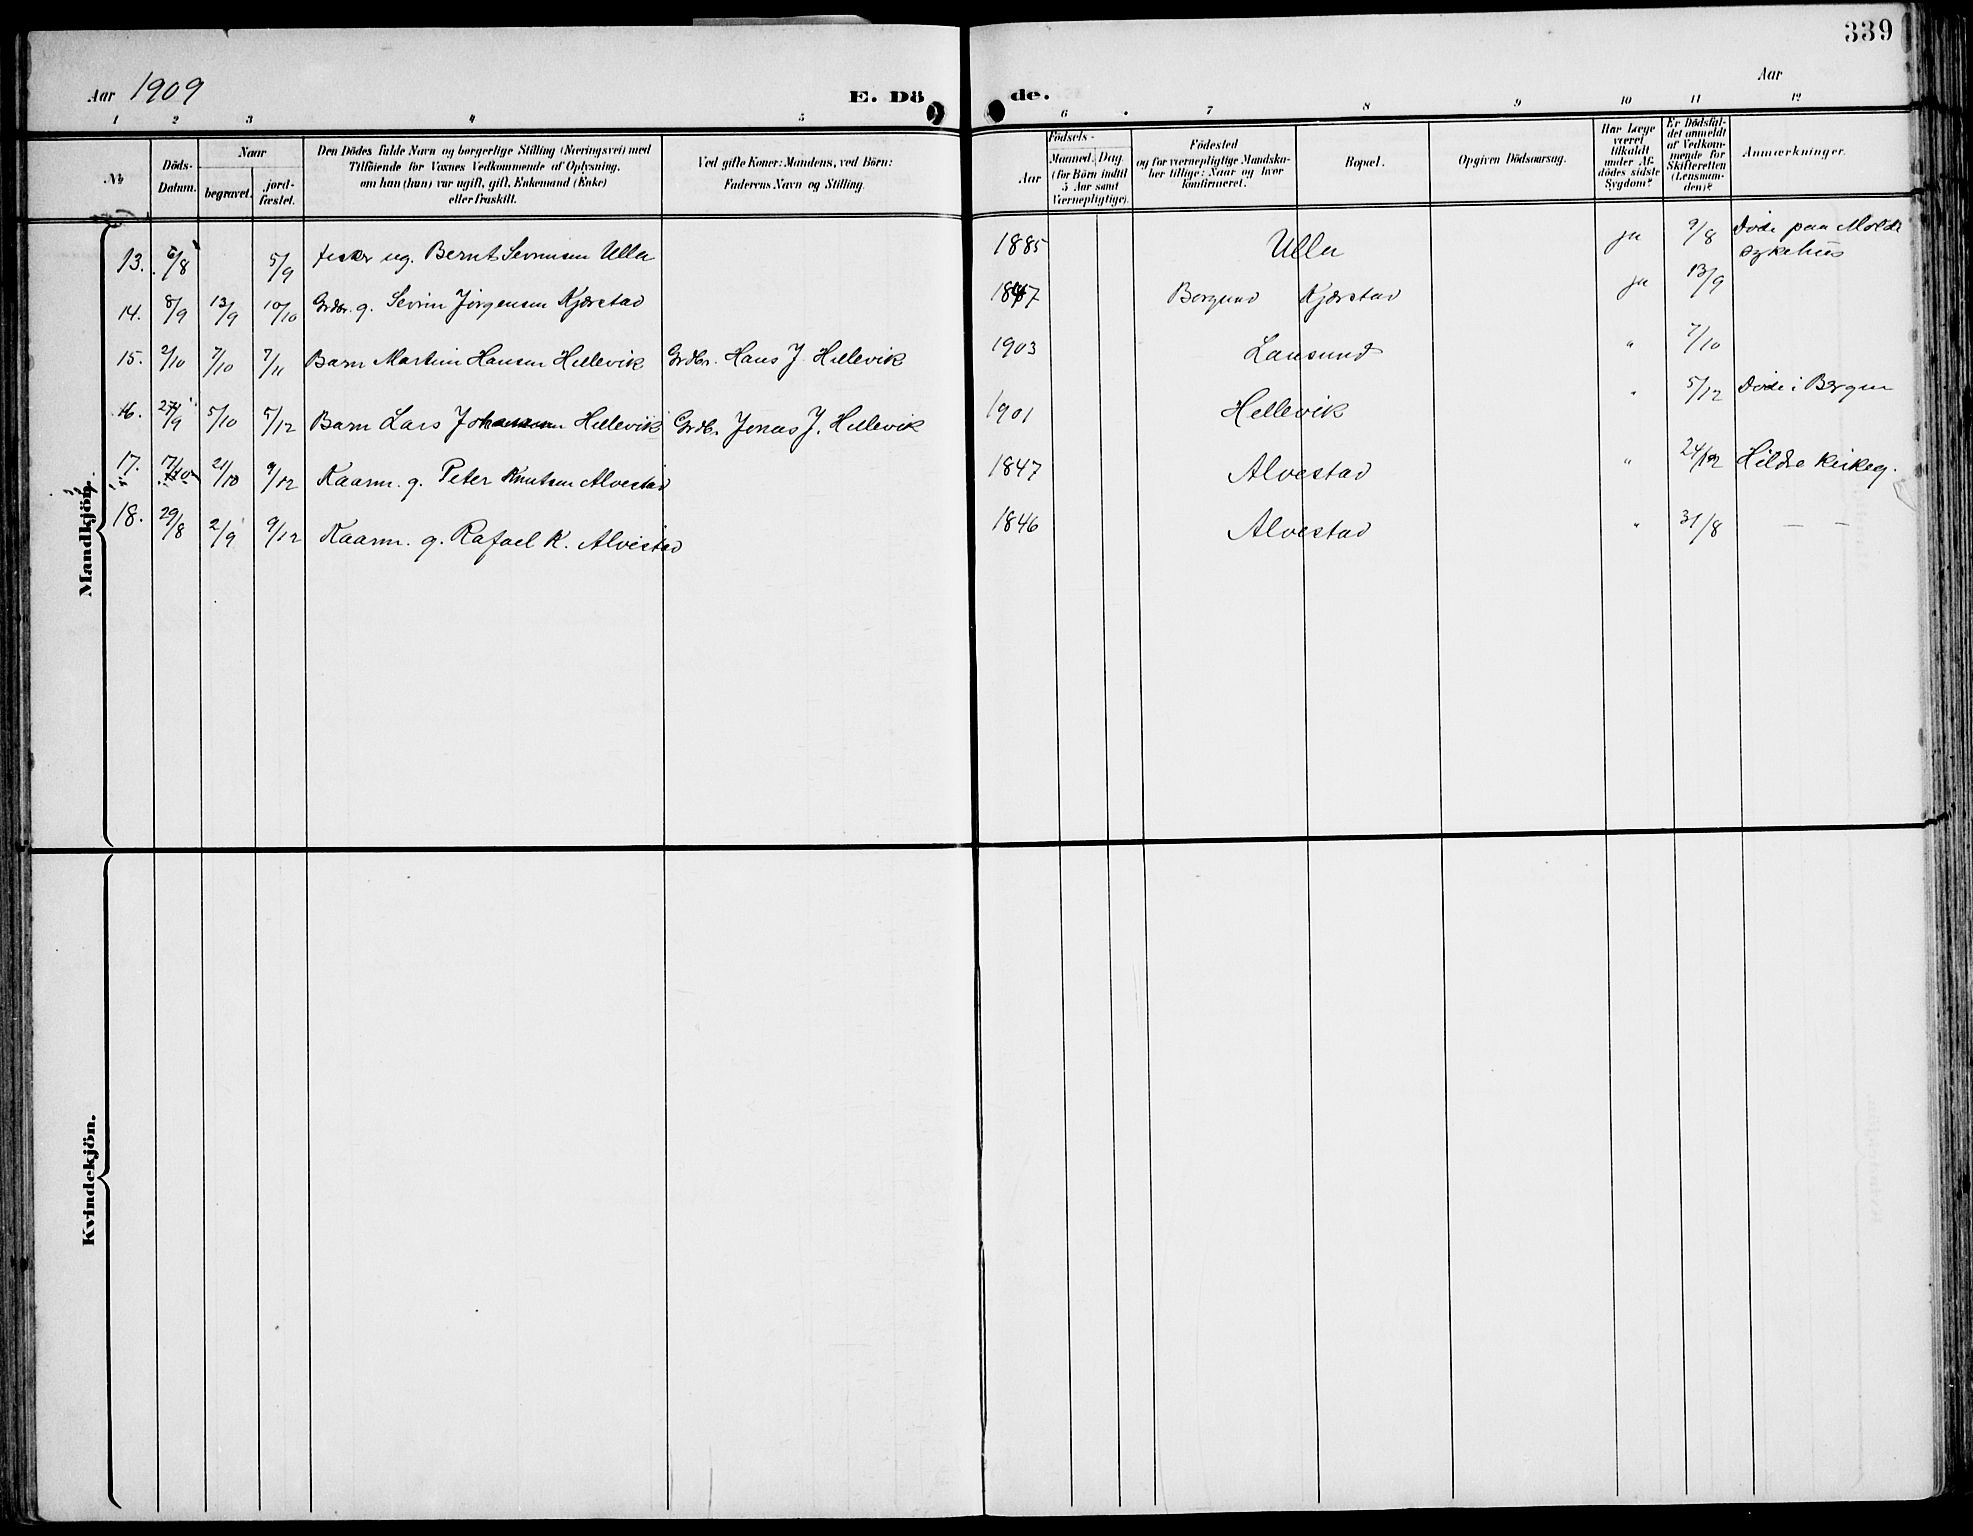 339
Aar 1909
E. Dö
de.
Aar
1 2 3 4 5 6 7 8 9 10 11 12
No
Döds-
Datum.
Naar
begravet.
jord-
fæstet.
Den Dödes fulde Navn og borgerlige Stilling (Næringsvei) med
Tilföiende for Voxnes Vedkommende af Oplysning,
om han (hun) var ugift, gift, Enkemand (Enke)
eller fraskilt.
Ved gifte Koner: Mandens, ved Börn:
Faderens Navn og Stilling.
Födsels-
Aar
Maaned. Dag.
(for Börn indtil
5 Aar samt
Værnepligtige).
Födested
og for værnepligtige Mandska-
ber tillige: Naar og hvor
konfirmeret.
Bopæl.
Opgiven Dödsaarsag.
Har Læge
været
tilkaldt
under Af-
dödes sidste
Sygdom?
Er Dödsfal-
det anmeldt
af Vedkom-
mende for
Skifteretten
(Lensman-
den)?
Anmærkninger.
Mandkjön.
13. 6/8 5/9 fisker ug. Bernt Sevrinsen Ulla 1885 Ulla ja 9/8 Döde paa Molde
sykehus
14. 8/9 13/9 10/10 Grdbr. g. Sevrin Jörgensen Kjærstad 1847 Borgund Kjærstad ja 13/9
15. 2/10 7/10 7/11 Barn Martin Hansen Hellevik Grdbr. Hans J. Hellevik 1903 Lausund " 7/10
16. 27/9 5/10 5/12 Barn Lars Johansen Hellevik Grdbr. Jonas J. Hellevik 1901 Hellevik " 5/12 Döde i Bergen
17. 17/10 21/10 9/12 Kaarm. g. Peter Knutsen Alvestad 1847 Alvestad " 24/12 Hildre kirkeg.
18. 29/8 2/9 9/12 Kaarm. g. Rafael K. Alvestad 1846 Alvestad " 31/8 — —
Kvindekjön.